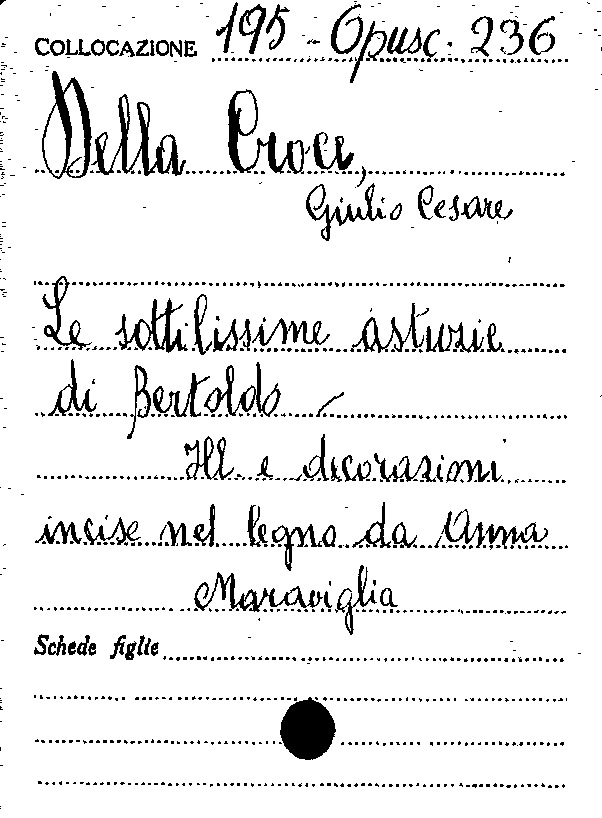 COLLOCAZIONE 195 - Opusc. 236
Della Croce,
Giulio Cesare
Le sottilissime astuzie
di Bertoldo -
Ill. e decorazioni
incise nel legno da Anna
Maraviglia
Schede figlie